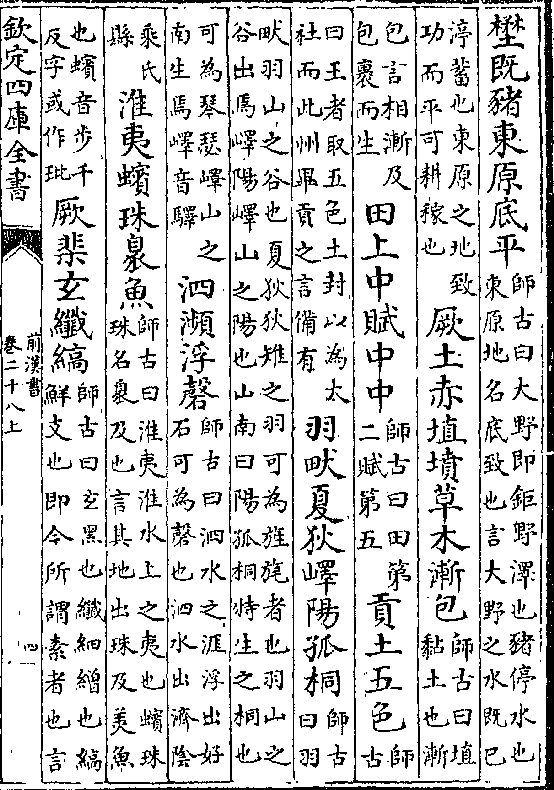 壄既豬東原底平師古曰大野即鉅野澤也豬停水也東原地名底致也言大野之水既已
渟蓄也東原之地致功而平可耕稼也厥土赤埴墳草木漸包師古曰埴黏土也漸
包言相漸及包裹而生田上中賦中中師古曰田第二賦第五貢土五色師古
曰王者取五色土封以為太社而此州畢貢之言備有羽畎夏狄嶧陽孤桐師古曰羽
畎羽山之谷也夏狄狄雉之羽可為旌旄者也羽山之谷出焉嶧陽嶧山之陽也山南曰陽孤桐特生之桐也
可為琴瑟嶧山之南生焉嶧音驛泗瀕浮磬師古曰泗水之涯浮出好石可為磬也泗水出濟陰
乘氏縣淮夷蠙珠臮魚師古曰淮夷淮水上之夷也蠙珠珠名臮及也言其地出珠及美魚
也蠙音步千反字或作玭厥棐玄纖縞師古曰玄黑也纖細繒也縞鮮支也即今所謂素者也言
欽定四庫全書
前漢書
卷二十八上
四